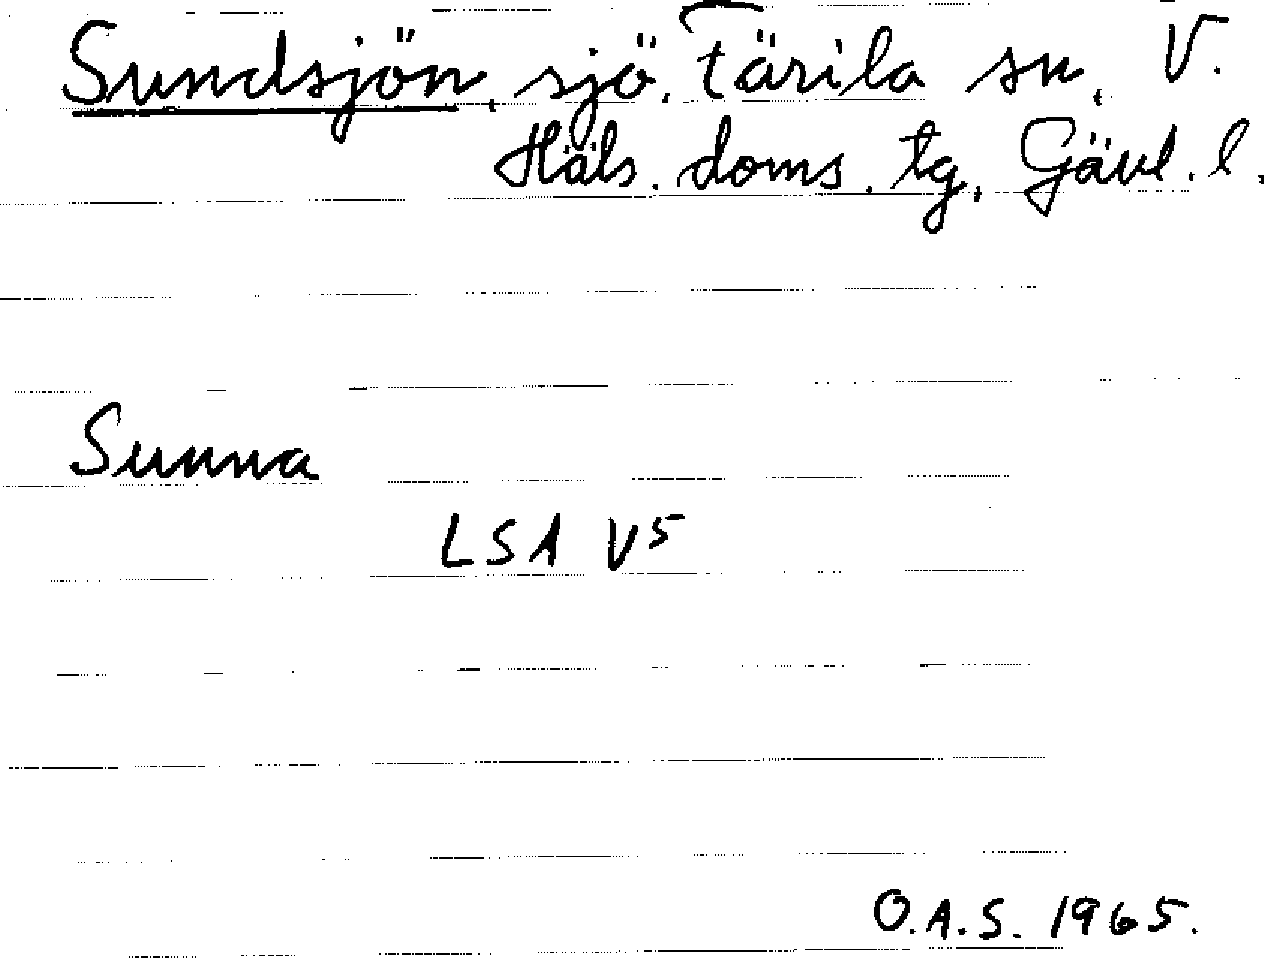 Sundsjön, sjö, Färila sn, V.
Häls. doms. tg, Gävl. l.
Sunna
LSA V5
O.A.S. 1965.